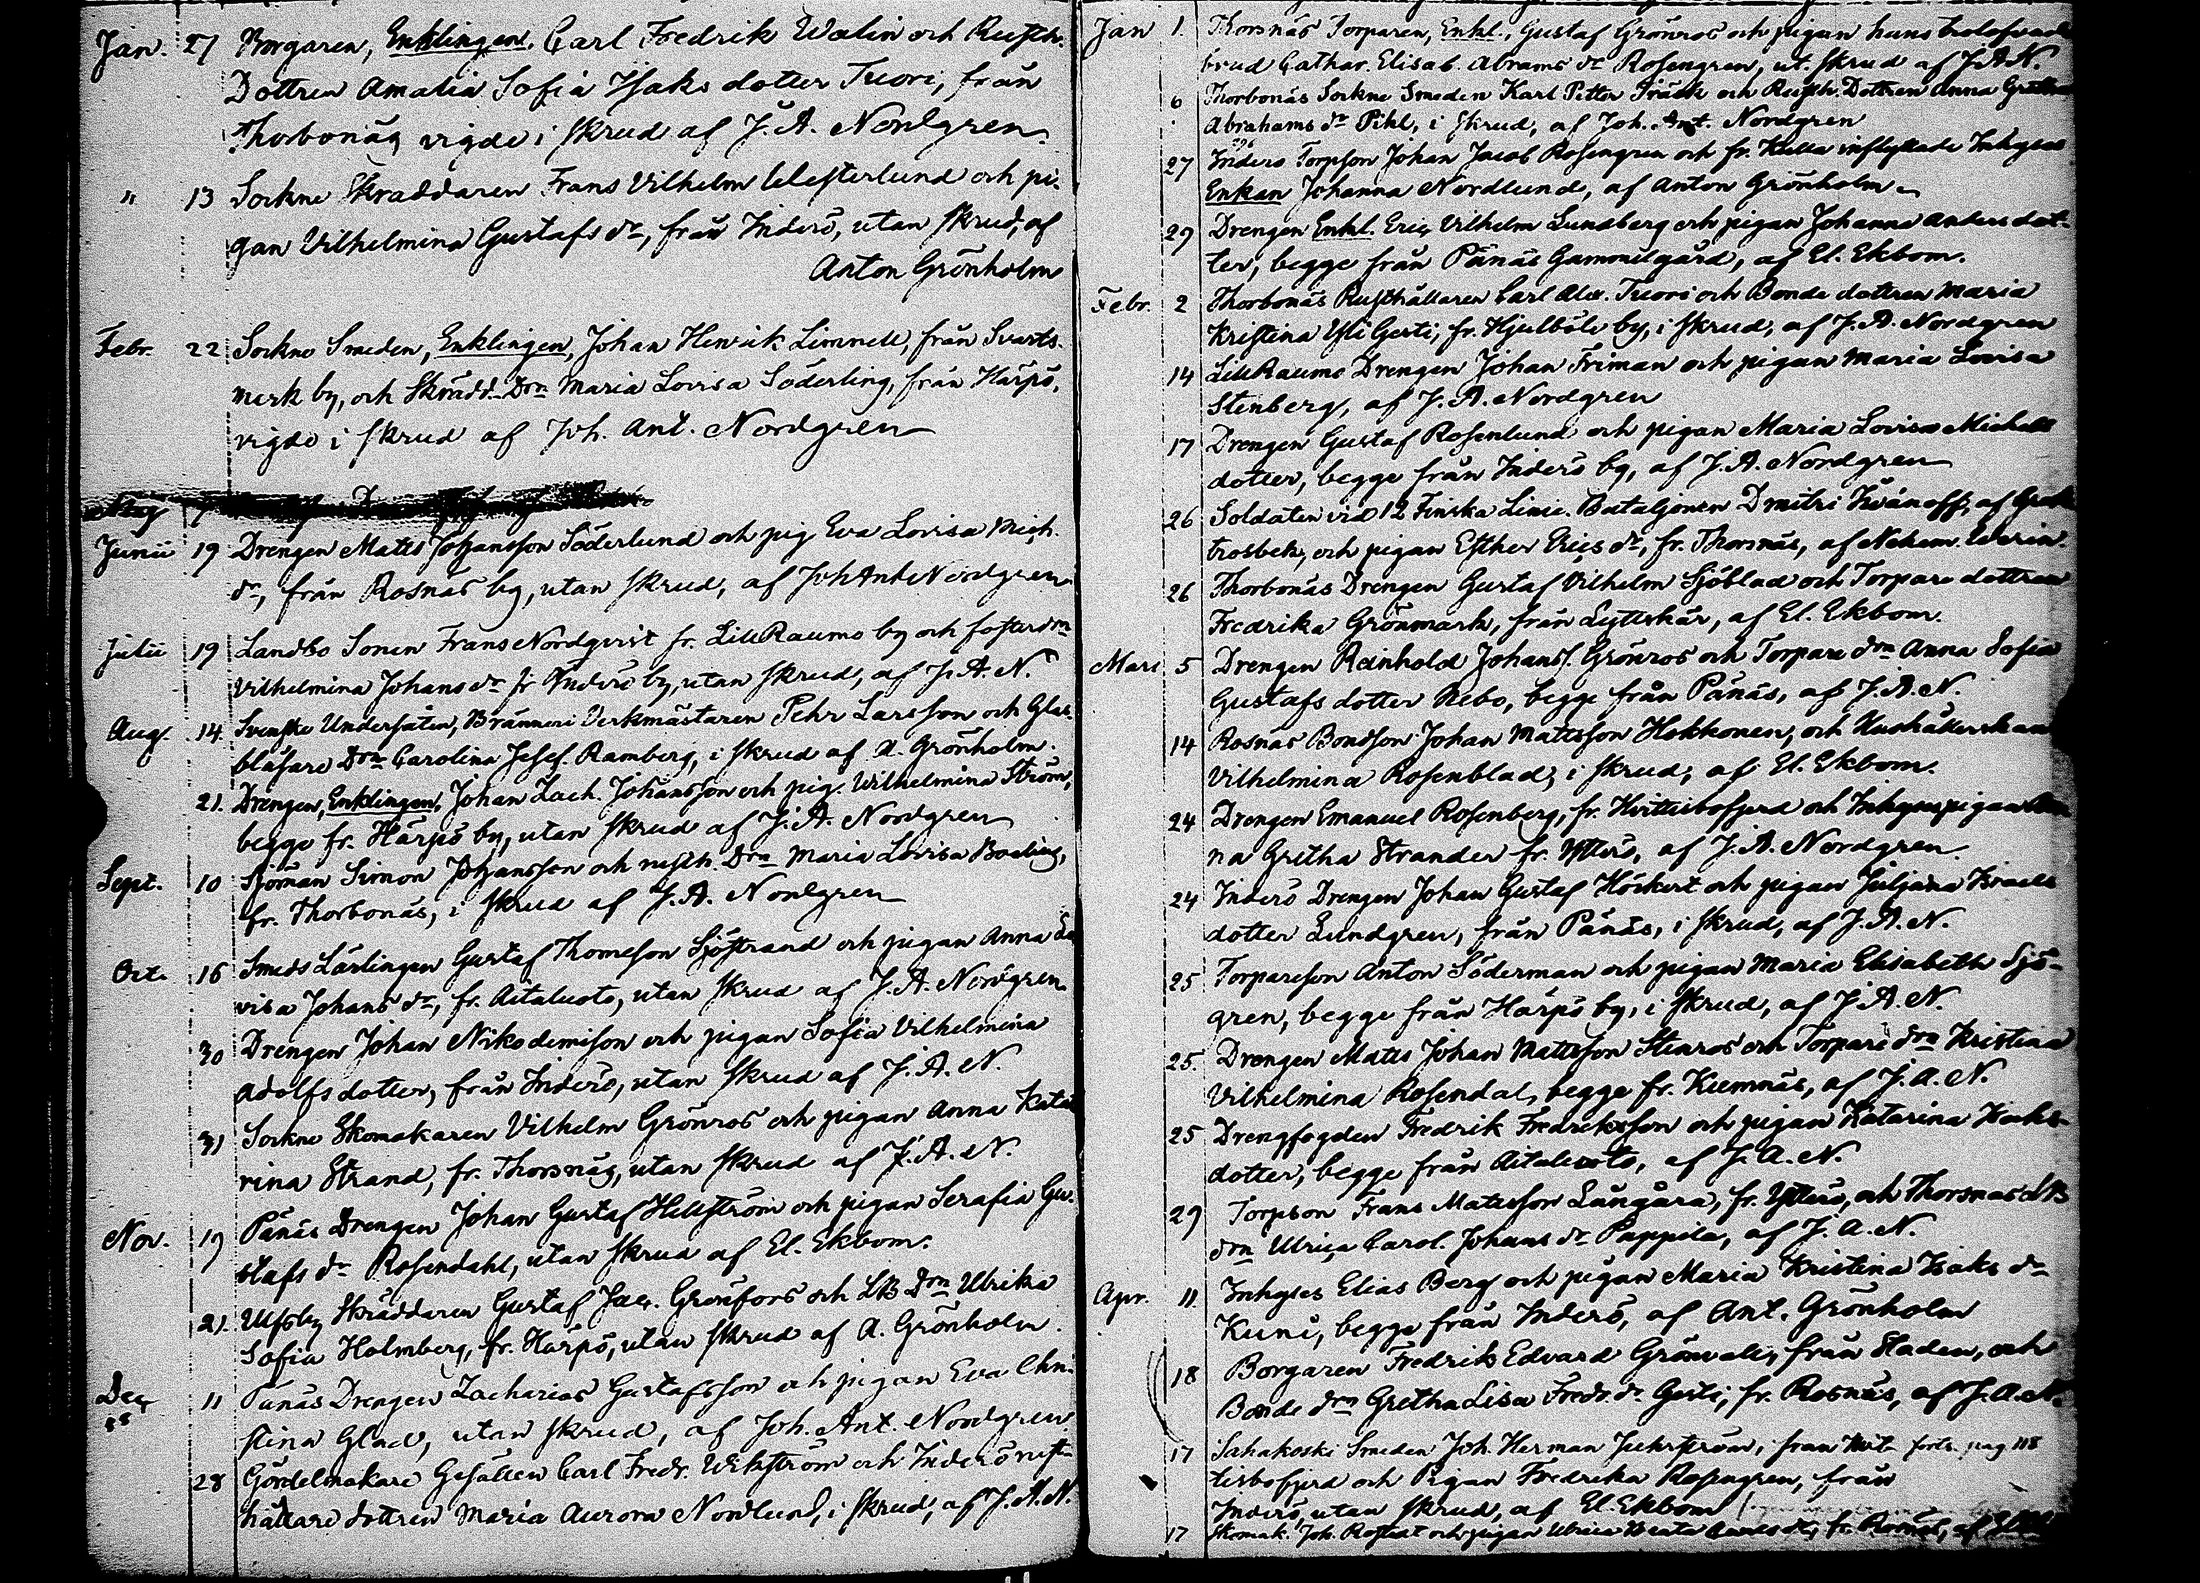 Jan. 27 Borgaren, Enklingen, Carl Fredrik Walin och Rusth.
Dottren Amalia Sofia Isaks dotter Tuori, från
Thorbonäs vigde i skrud af J. A. Nordgren
" 13 Sockne Skräddaren Frans Vilhelm Westerlund och pi-
gan Vilhelmina Gustafs dr, från Inderö, utan skrud, af
Anton Grönholm
Febr. 22 Sockne Smeden, Enklingen, Johan Henrik Limnell, från Svarts-
mark by, och Skrädd. Drn Maria Lovisa Söderling, från Härpö,
vigde i skrud af Joh. Ant. Nordgren
Maj
Junii 19 Drengen Matts Johansson Söderlund och pig Eva Lovisa Mich.
dr, från Rosnäs by, utan skrud, af Joh Ant Nordgren
Julii 19 Landbo Sonen Frans Nordqvist fr. Lill Raumo by och fosterdrn
Vilhelmina Johans dr fr Inderö by, utan skrud, af J. A. N.
Aug. 14 Svenske Undersåten, Bränneri Verkmästaren Pehr Larsson och Glas-
blåsare Drn Carolina Josef. Ramberg, i skrud af A. Grönholm.
21. Drengen, Enklingen, Johan Zach. Johansson och pig. Wilhelmina Ström,
begge fr. Härpö by, utan skrud af J. A. Nordgren
Sept. 10 Sjöman Simon Johansson och rusth. Drn Maria Lovisa Boelius,
fr. Thorbonäs, i skrud af J. A. Nordgren
Oct. 16 Smeds Lärlingen Gustaf Thomeson Sjöstrand och pigan Anna Lo
visa Johans dr, fr. Aitaluoto, utan skrud af J. A. Nordgren
30 Drengen Johan Nikodemison och pigan Sofia Vilhelmina
Adolfs dotter, från Inderö, utan skrud af J. A. N.
31 Sockne Skomakaren Vilhelm Grönros och pigan Anna Kata
rina Strand, fr. Thorsnäs, utan skrud af J. A. N.
Nov. 19 Pånäs Drengen Johan Gustaf Hellström och pigan Serafia Gu-
stafs dr Rosendahl, utan skrud af El. Ekbom.
21. Ulfsby Skräddaren Gustaf Jac. Grönfors och LB Drn Ulrika
Sofia Holmberg, fr. Härpö, utan skrud af A. Grönholm.
Dec 11 Pånäs Drengen Zacharias Gustafsson och pigan Eva Chri
stina Glad, utan skrud, af Joh. Ant. Nordgren
28 Gördelmakare Gesällen Carl Fredr. Wikström och Inderö rust-
hållare dottren Maria Aurora Nordlund, i skrud, af J. A. N.
Jan 1. Thorsnäs Torparen, Enkl., Gustaf Grönros och pigan hans trolofvade
brud Cathar. Elisab. Abrams dr Rosengren, ut. skrud af J. A. N.
6 Thorbonäs Sockne Smeden Karl Petter Träsk och Rusth. Dottren Anna Gretha
Abrahams dr Pihl, i skrud, af Joh. Ant. Nordgren
27 Inderö Torpson Johan Jacob Rosengren och fr. Kulla inflyttade Inhyses
Enkan Johanna Nordlund, af Anton Grönholm
29 Drengen Enkl. Eric Vilhelm Lundberg och pigan Johanna Anders dot-
ter, begge från Pånäs Gammelgård, af El. Ekbom.
Febr. 2 Thorbonäs Rusthållaren Carl Alex. Tuori och Bonde dottren Maria
Kristina Yli Gerti, fr. Hjulböle by, i skrud, af J. A. Nordgren
14 Lill Raumo Drengen Johan Friman och pigan Maria Lovisa
Stenberg, af J. A. Nordgren
17 Drengen Gustaf Rosenlund och pigan Maria Lovisa Michels
dotter, begge från Inderö by, af J. A. Nordgren
26 Soldaten vid 12 Finska Linie Bataljonen Dmitri Ivanoff, af Grek
trosbek, och pigan Esther Erics dr, fr. Thorsnäs, af Nehem.
26 Thorbonäs Drengen Gustaf Vilhelm Sjöblad och Torpare dottren
Fredrika Grönmark, från Lyttskär, af El. Ekbom.
Mars 5 Drengen Reinhold Johanss. Grönros och Torpare drn Anna Sofia
Gustafs dotter Nebo, begge från Pånäs, af J. A. N.
14 Rosnäs Bondson Johan Mattsson Hokkonen, och Hushållerskan
Vilhelmina Rosenblad, i skrud, af El. Ekbom.
24 Drengen Emanuel Rosenberg, fr. Hvittisbofjerd och Inhysespigan An
na Gretha Strander fr. Ytterö, af J. A. Nordgren.
24 Inderö Drengen Johan Gustaf Höckert och pigan Juljana Israels
dotter Lundgren, från Pånäs, i skrud, af J. A. N.
25 Torpareson Anton Söderman och pigan Maria Elisabeth Sjö-
gren, begge från Härpö by, i skrud, af J. A. N.
25. Drengen Matts Johan Mattsson Stenros och Torpare drn Kristina
Vilhelmina Rosendal, begge fr. Kumnäs, af J. A. N.
25 Drengfogden Fredrik Fredriksson och pigan Katarina Isaks-
dotter, begge från Aitaluoto, af J. A. N.
29 Torpson Frans Mattsson Långåra, fr. Ytterö, och Thorsnäs LB
drn Ulrica Carol. Johans dr Pappila, af J. A. N.
Apr. 11. Inhyses Elias Berg och pigan Maria Kristina Isaks dr
Kuni, begge från Inderö, af Ant. Grönholm
18 Borgaren Fredrik Edvard Grönvall, från Staden, och
Bonde drn Gretha Lisa Fredr. dr Gerti, fr. Rosnäs, af J. A. N.
17 Sahakoski Smeden Joh. Herman Juhrström, från Hvit- forts. pag 118
tisbofjerd och Pigan Fredrika Rosengren, från
Inderö, utan skrud, af El. Ekbom
17 Skomak. Joh. Roskast och pigan Ulrica Beata dr, fr. Rosnäs, af